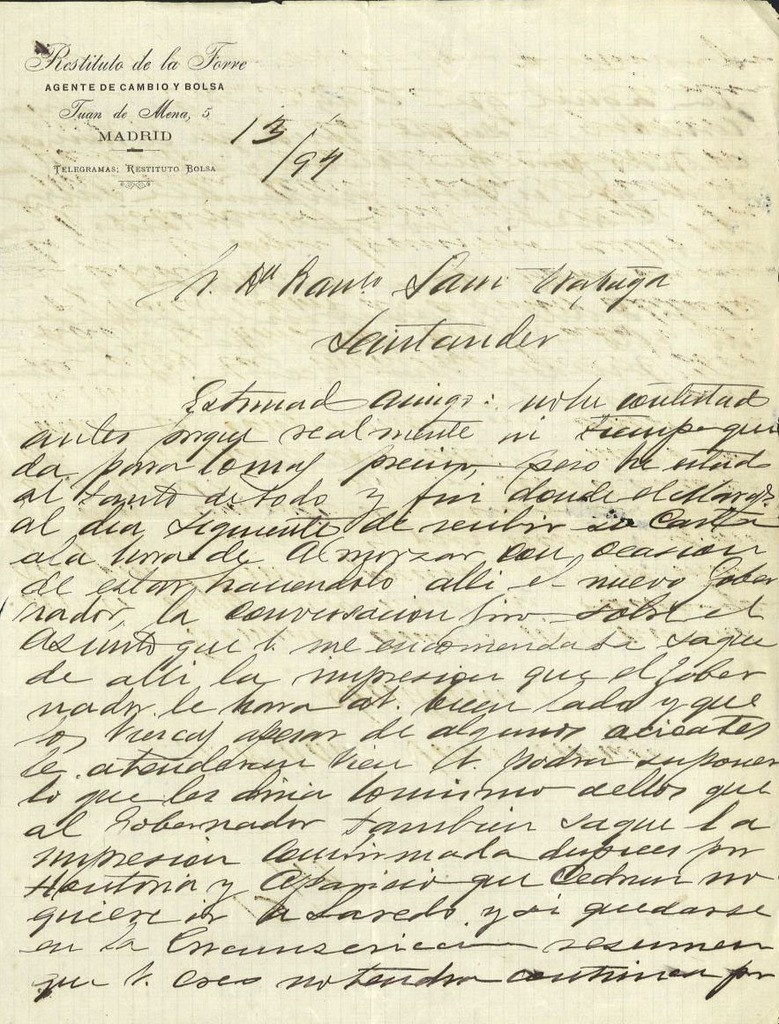 Restituto de la Torre
AGENTE DE CAMBIO Y BOLSA
Juan de Mena, 5
MADRID
TELEGRAMAS: RESTITUTO BOLSA
13/94
Santander
Estimad amigo: no he contestad
antes porque realmente ni tiempo que
da para lo mas preciso, pero he estad
al tanto de todo y fui donde el
al dia siguiente de recibir su Carta
a la hora de Almorzar con ocasion
de estar haciendolo alli el nuevo Gober
nador, la conversacion giro sobre el
Asunto que V. me encomendaba saque
de alli la impresion que el Gober
nador le hara a V. buen lado y que
los apesar de algunos
le atenderan bien V. podra suponer
lo que les diria lo mismo a ellos que
al Gobernador tambien saque la
impresion confirmada despues por
Hontoria y Aparicio que Cedrun no
quiere ir a Laredo y si quedarse
en la Circunscricion resumen
que V. creo no tendra contrinca por